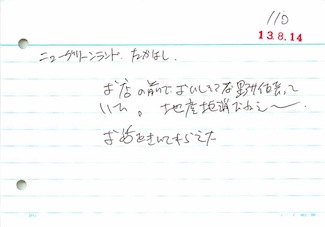 110
13.8.14
ニューグリーンランド たかはし
お店の前でおいしそうな野菜売って
いた。地産地消だねえ〜。
お話をきいてもらえた